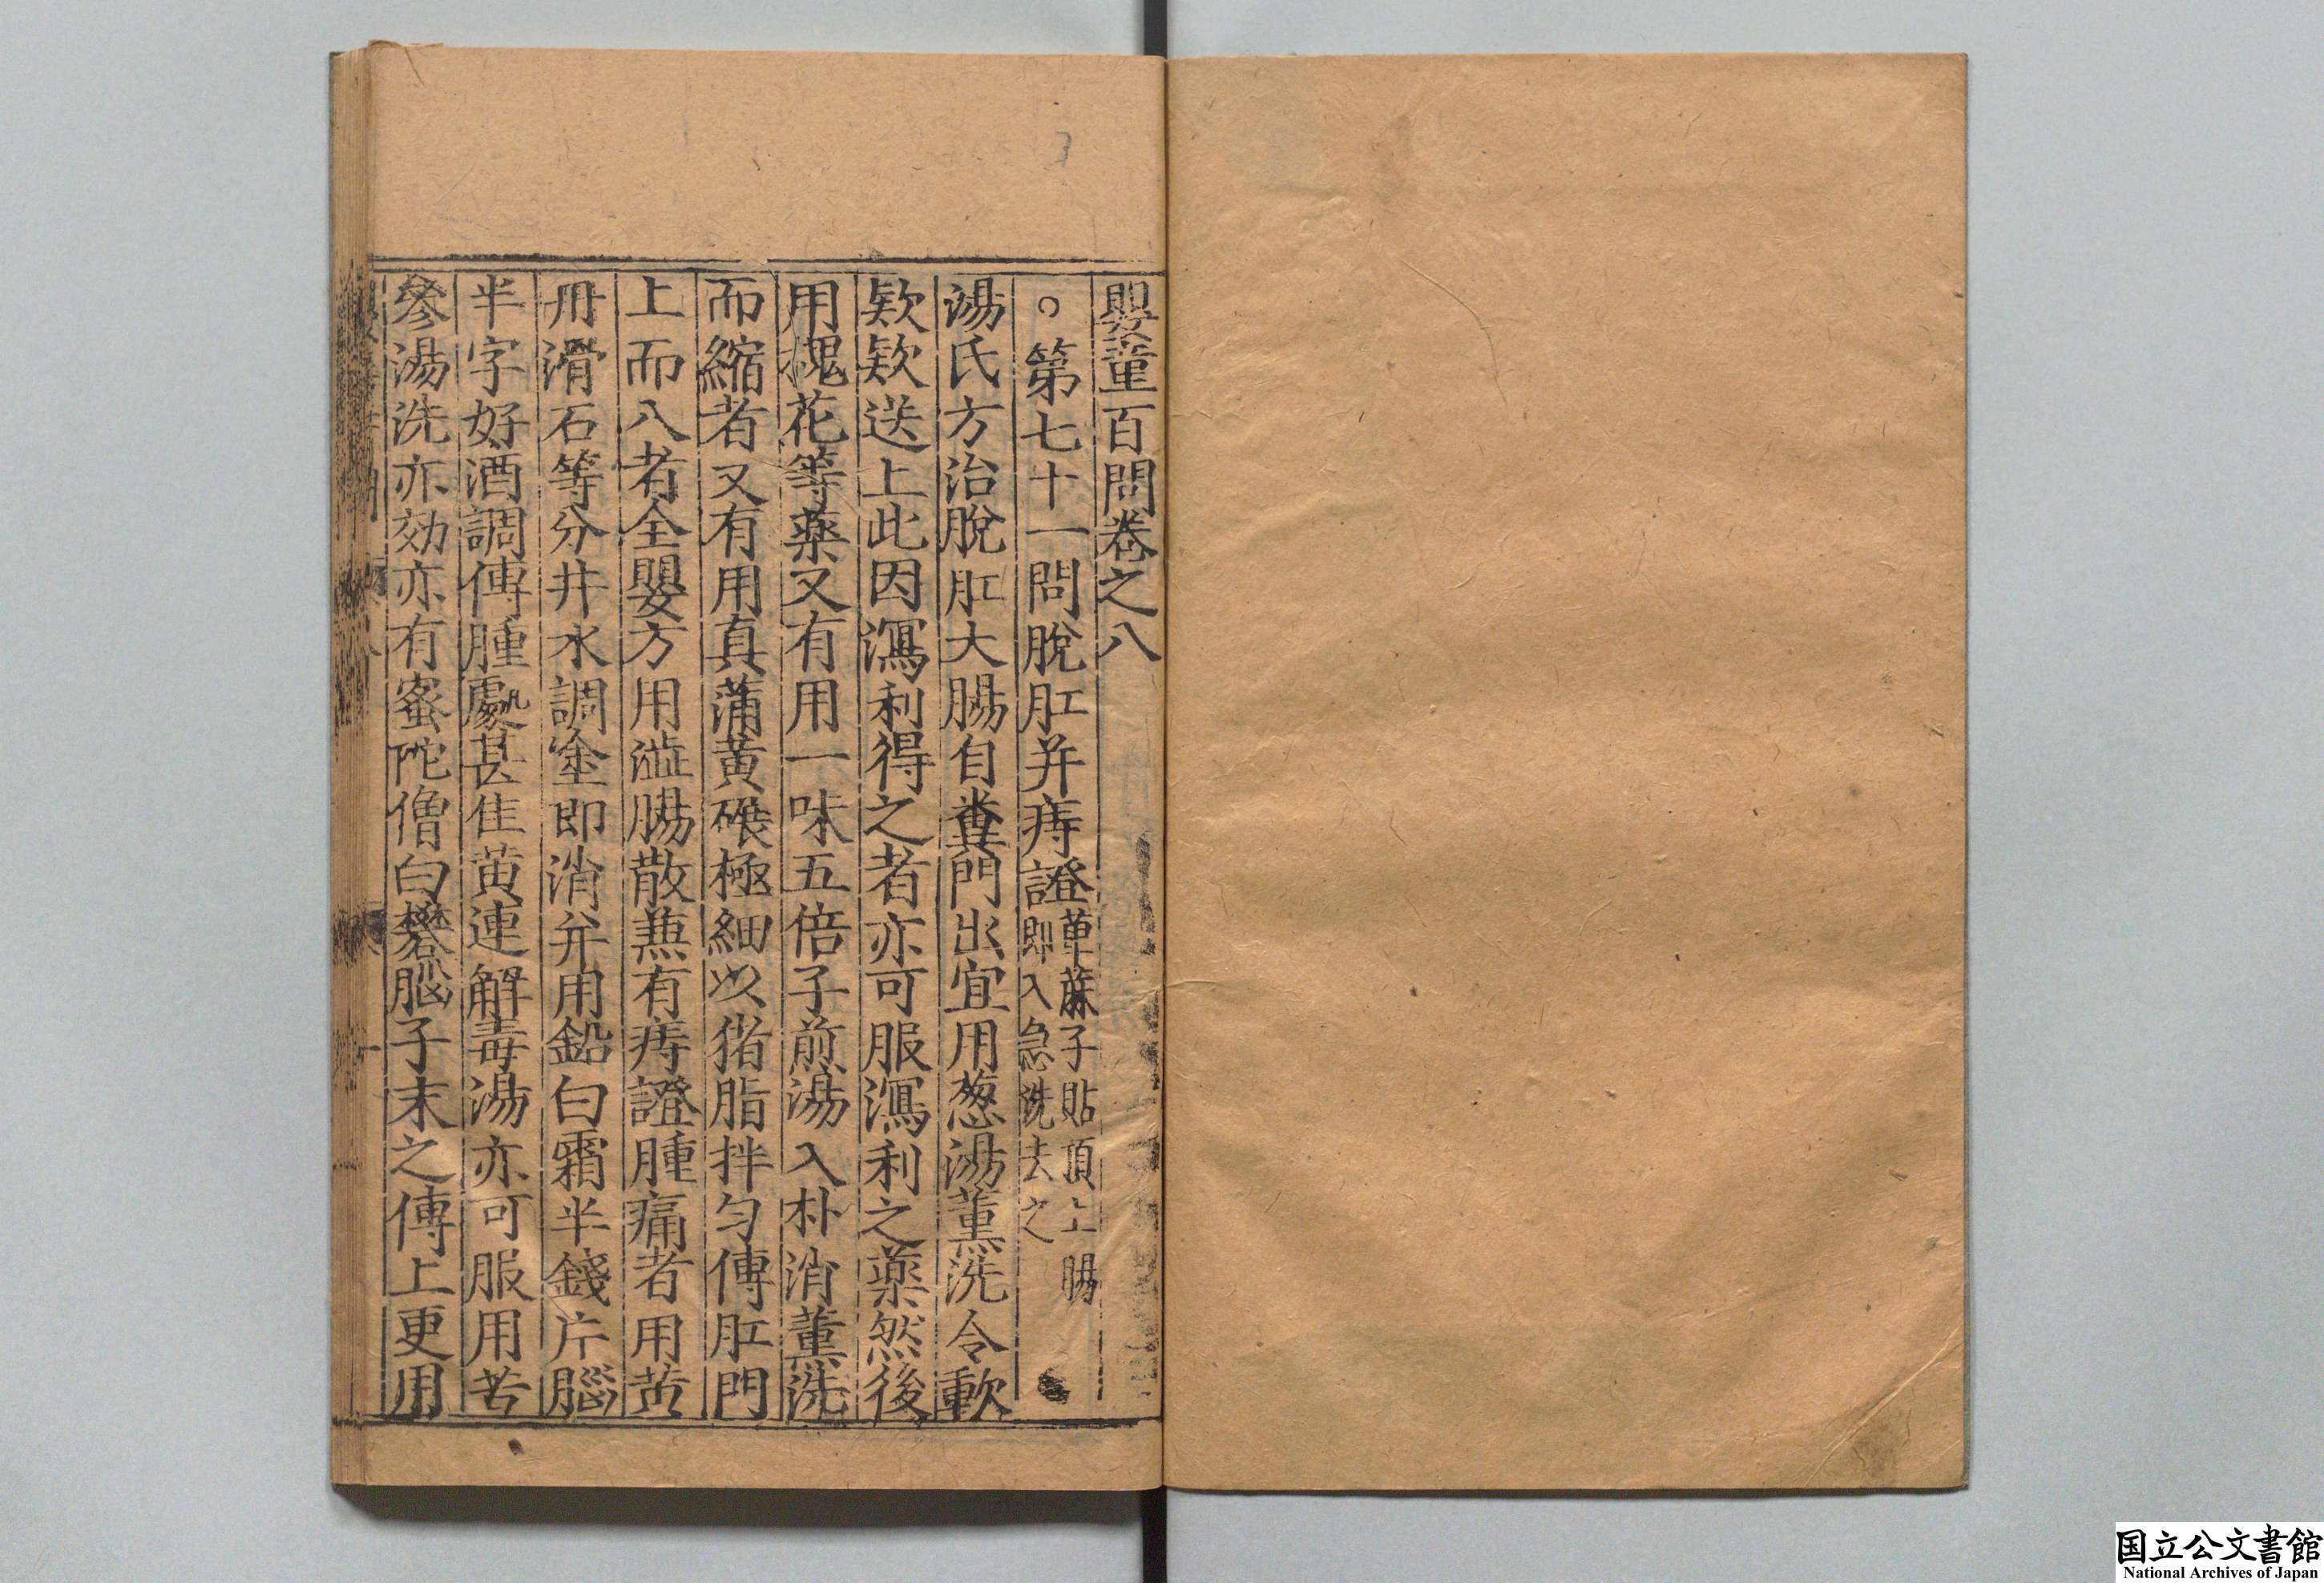 嬰童百問卷之八
○第七十一問脫肛并痔證萆蔴子貼頂上腸即入急洗去之
湯氏方治脫肛大腸自糞門出宜用葱湯薰洗令軟
欵欵送上此因瀉利得之者亦可服瀉利之藥然後
用槐花等藥又有用一味五倍子煎湯入朴消薰洗
而縮者又有用真蒲黃碾極細以猪脂拌勻傅肛門
上而入者全嬰方用澁腸散兼有痔證腫痛者用黄
丹滑石等分井水調塗即消并用鉛白霜半錢片腦
半字好酒調傅腫處甚佳黄連解毒湯亦可服用苦
參湯洗亦効亦有蜜陀僧白礬腦子末之傅上更用
国立公文書館
National Archives of Japan